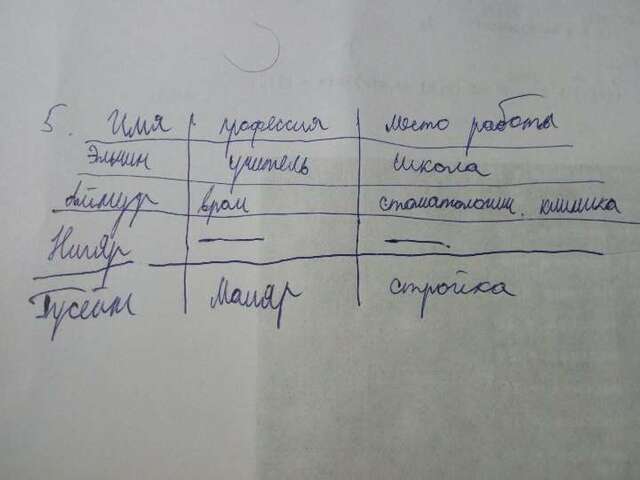 5. Имя профессия место работы
Элькин учитель школа
Айнур врач стоматологич. клиника
Нигяр — —.
Гусейн Маляр стройка